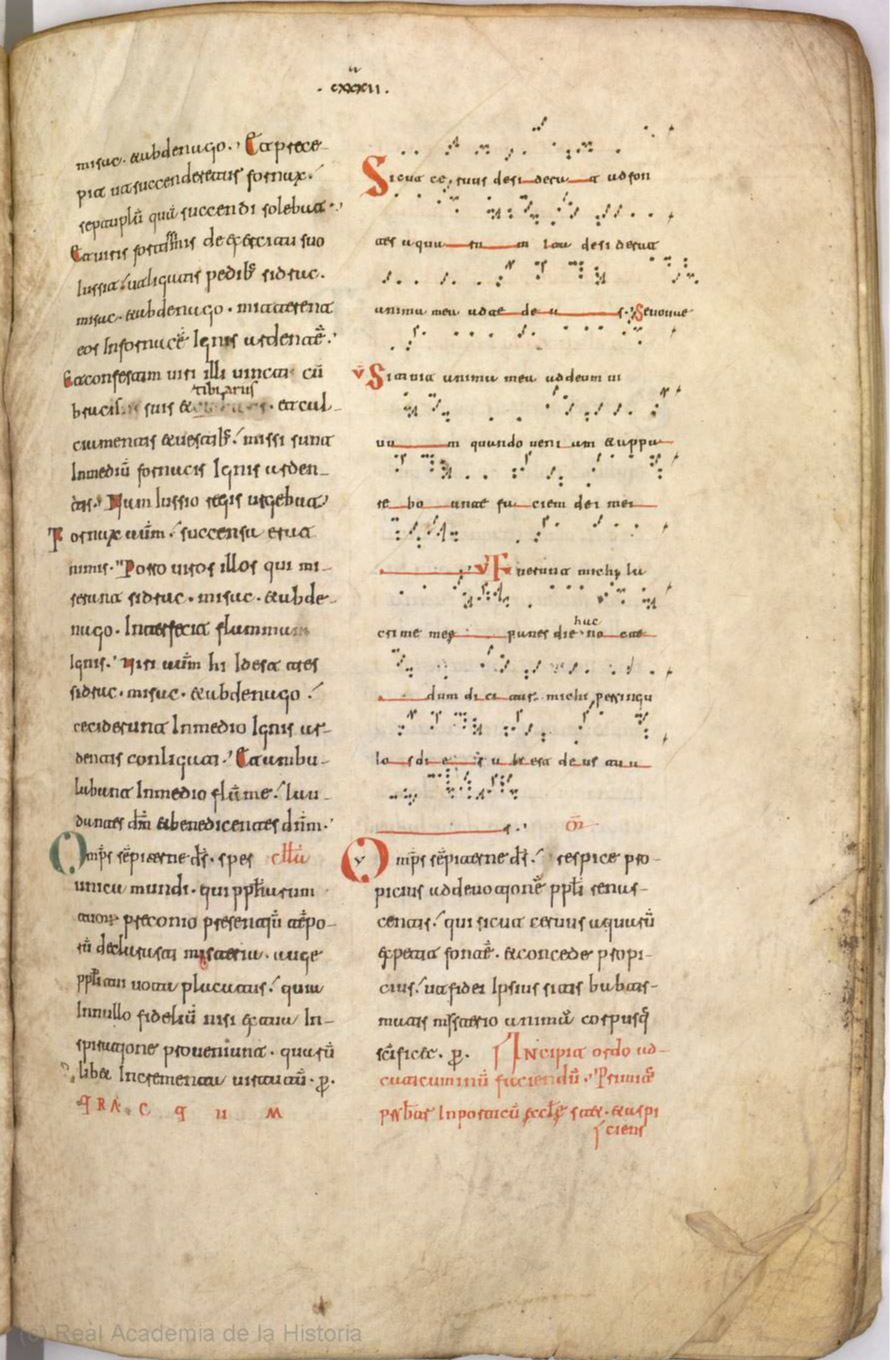 ·cxxxii·
misac· & abdenago· Et prece-
pit ut succenderetur fornax·
septuplū quā succendi solebat·
Et viris fortissimis de exercitu suo
iussit ut ligatis pedib; sidrac·
misac· & abdenago· mitterent
eos in fornacē ignis ardentē·
Et confestim viri illi vincti cū
tibiariis
bracis suis & et cal-
ciamentis & vestib; missi sunt
in mediū fornacis ignis arden-
tis· Nam iussio regis urgebat
Fornax aūm succensa erat
nimis· Porro viros illos qui mi-
serunt sidrac· misac· & abde-
nago· interfecit flamma
ignis· Viri aūm hi idest tres
sidrac· misac· & abdenago
ceciderunt in medio ignis ar-
dentis conligati· Et ambu-
labant in medio flāme lau-
dantes dm̄ & benedicentes dnm̄·
Omp̄s sēpiterne ds̄· spes
unica mundi· qui pphētarum
tuor̄ preconio presentiū tēpo-
rū declarasti misteria· auge
populi tui vota placatus quia
in nullo fideliū nisi ex tua in-
spiratione proveniunt· quarū
libet incrementa virtutū· p̄·
Sicut cervus desiderat ad fon
tes aquarum ita desiderat
anima mea ad te deus· Seuouae
v̄ Sitivit anima mea ad deum vi
vum quando veniam & appa
rebo ante faciem dei mei
v̄ Fuerunt michi la
huc
crime mee panes die no cte
dum dicitur michi per singu
los dies ubi est deus tuus· or̄
Omp̄s sēpiterne ds̄· respice pro-
picius ad devotionē ppli renas-
centis· qui sicut cervus aquarū
expetit fontē· & concede propi-
cius· ut fidei ipsius sitis babtis-
matis misterio animā corpusq;
scīficet· p̄· Incipit ordo ad
caticuminū faciendū· Primū